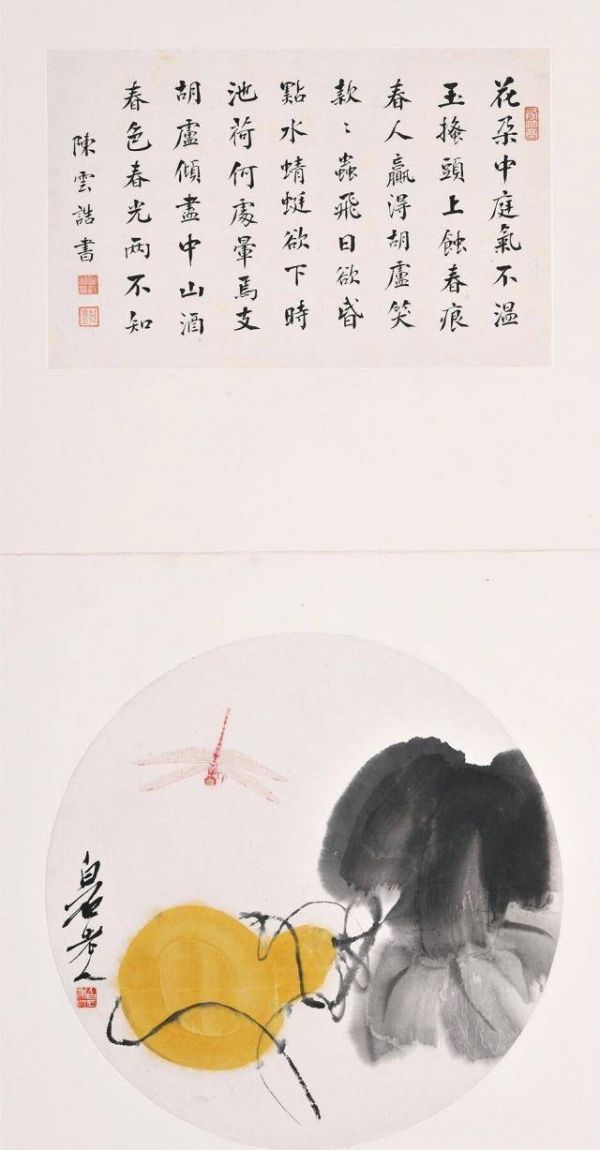 花朶中庭氣不溫
玉搔頭上蝕春痕
春人贏得胡盧笑
款〻蟲飛日欲昏
點水蜻蜓欲下時
池荷何處暈焉支
胡盧傾盡中山酒
春色春光兩不知
陳雲誥書
白石老人